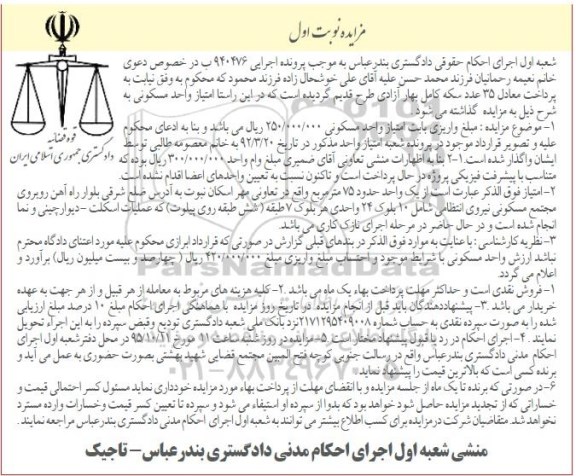 مزایده نوبت اول
قوه قضائیه
دادگستری جمهوری اسلامی ایران
شعبه اول اجرای احکام حقوقی دادگستری بندرعباس به موجب پرونده اجرایی ۹۴۰۴۷۶ ب در خصوص دعوی
خانم نعیمه رحمانیان فرزند محمد حسن علیه آقای علی خوشحال زاده فرزند محمود که محکوم به وفق نیابت به
پرداخت معادل ۳۵ عدد سکه کامل بهار آزادی طرح قدیم گردیده است که در این راستا امتیاز واحد مسکونی به
شرح ذیل به مزایده گذاشته می شود.
۱- موضوع مزایده : مبلغ واریزی بابت امتیاز واحد مسکونی ۲۵۰/۰۰۰/۰۰۰ ریال می باشد و بنا به ادعای محکوم
علیه و تصویر قرارداد موجود در پرونده شعبه امتیاز واحد مذکور در تاریخ ۹۲/۳/۲۰ به خانم معصومه طالبی توسط
ایشان واگذار شده است.۱-۲ بنا به اظهارات منشی تعاونی آقای ضمیری مبلغ وام واحد ۳۰۰/۰۰۰/۰۰۰ ریال بوده که
متناسب با پیشرفت فیزیکی پروژه در حال پرداخت است و تاکنون نسبت به تعیین واحدهای اعضا اقدام نشده است.
۲-امتیاز فوق الذکر عبارت است از یک واحد حدود ۷۵ مترمربع واقع در تعاونی مهر اسکان نبوت به آدرس ضلع شرقی بلوار راه آهن روبروی
مجتمع مسکونی نیروی انتظامی شامل ۱۰ بلوک ۲۴ واحدی هر بلوک ۷ طبقه ( شش طبقه روی پیلوت) که عملیات اسکلت -دیوارچینی و نما
انجام شده است و در حال حاضر در مرحله اجرای نازک کاری می باشد.
۳- نظریه کارشناسی : با عنایت به موارد فوق الذکر در بندهای قبلی گزارش در صورتی که قرارداد ابرازی محکوم علیه مورد اعتنای دادگاه محترم
نباشد ارزش واحد مسکونی با شرایط موجود و احتساب مبلغ واریزی مبلغ ۴۲۰/۰۰۰/۰۰۰ ریال ( چهارصد و بیست میلیون ریال) برآورد و
اعلام می گردد.
۱- فروش نقدی است و حداکثر مهلت پرداخت بهاء یک ماه می باشد. ۲- کلیه هزینه های مربوط به معامله از هر قبیل و از هر جهت به عهده
خریدار می باشد .۳- پیشنهاددهندگان باید قبل از انجام مزایده در تاریخ روز مزایده با هماهنگی اجرای احکام مبلغ ۱۰ درصد مبلغ ارزیابی
شده را به صورت سپرده نقدی به حساب شماره ۲۱۷۱۲۹۵۴۰۹۰۰۸ نزد بانک ملی شعبه دادگستری تودیع و قبض سپرده را به این اجراء تحویل
نمایند . ۴- اجرای احکام در رد یا قبول پیشنهاد مختار است . ۵- مزایده در روز شنبه ساعت ۱۱ مورخ ۹۵/۱۰/۲۱ در محل دفتر شعبه اول اجرای
احکام مدنی دادگستری بندرعباس واقع در رسالت جنوبی کوچه فتح المبین مجتمع قضایی شهید بهشتی بصورت حضوری به عمل می آید و
برنده کسی است که بالاترین قیمت را پیشنهاد نماید
۶-در صورتی که برنده تا یک ماه از جلسه مزایده و با انقضای مهلت از پرداخت بهاء مورد مزایده خودداری نماید مسئول کسر احتمالی قیمت و
خساراتی که از تجدید مزایده حاصل شود خواهد بود که بدوا از سپرده او استیفاء می شود و سپرده تا تعیین کسر قیمت وخسارات وارده مسترد
نخواهد شد.متقاضیان شرکت در مزایده برای کسب اطلاع بیشتر می توانند به شعبه اول اجرای احکام مدنی دادگستری بندرعباس مراجعه نمایند .
منشی شعبه اول اجرای احکام مدنی دادگستری بندرعباس- تاجیک